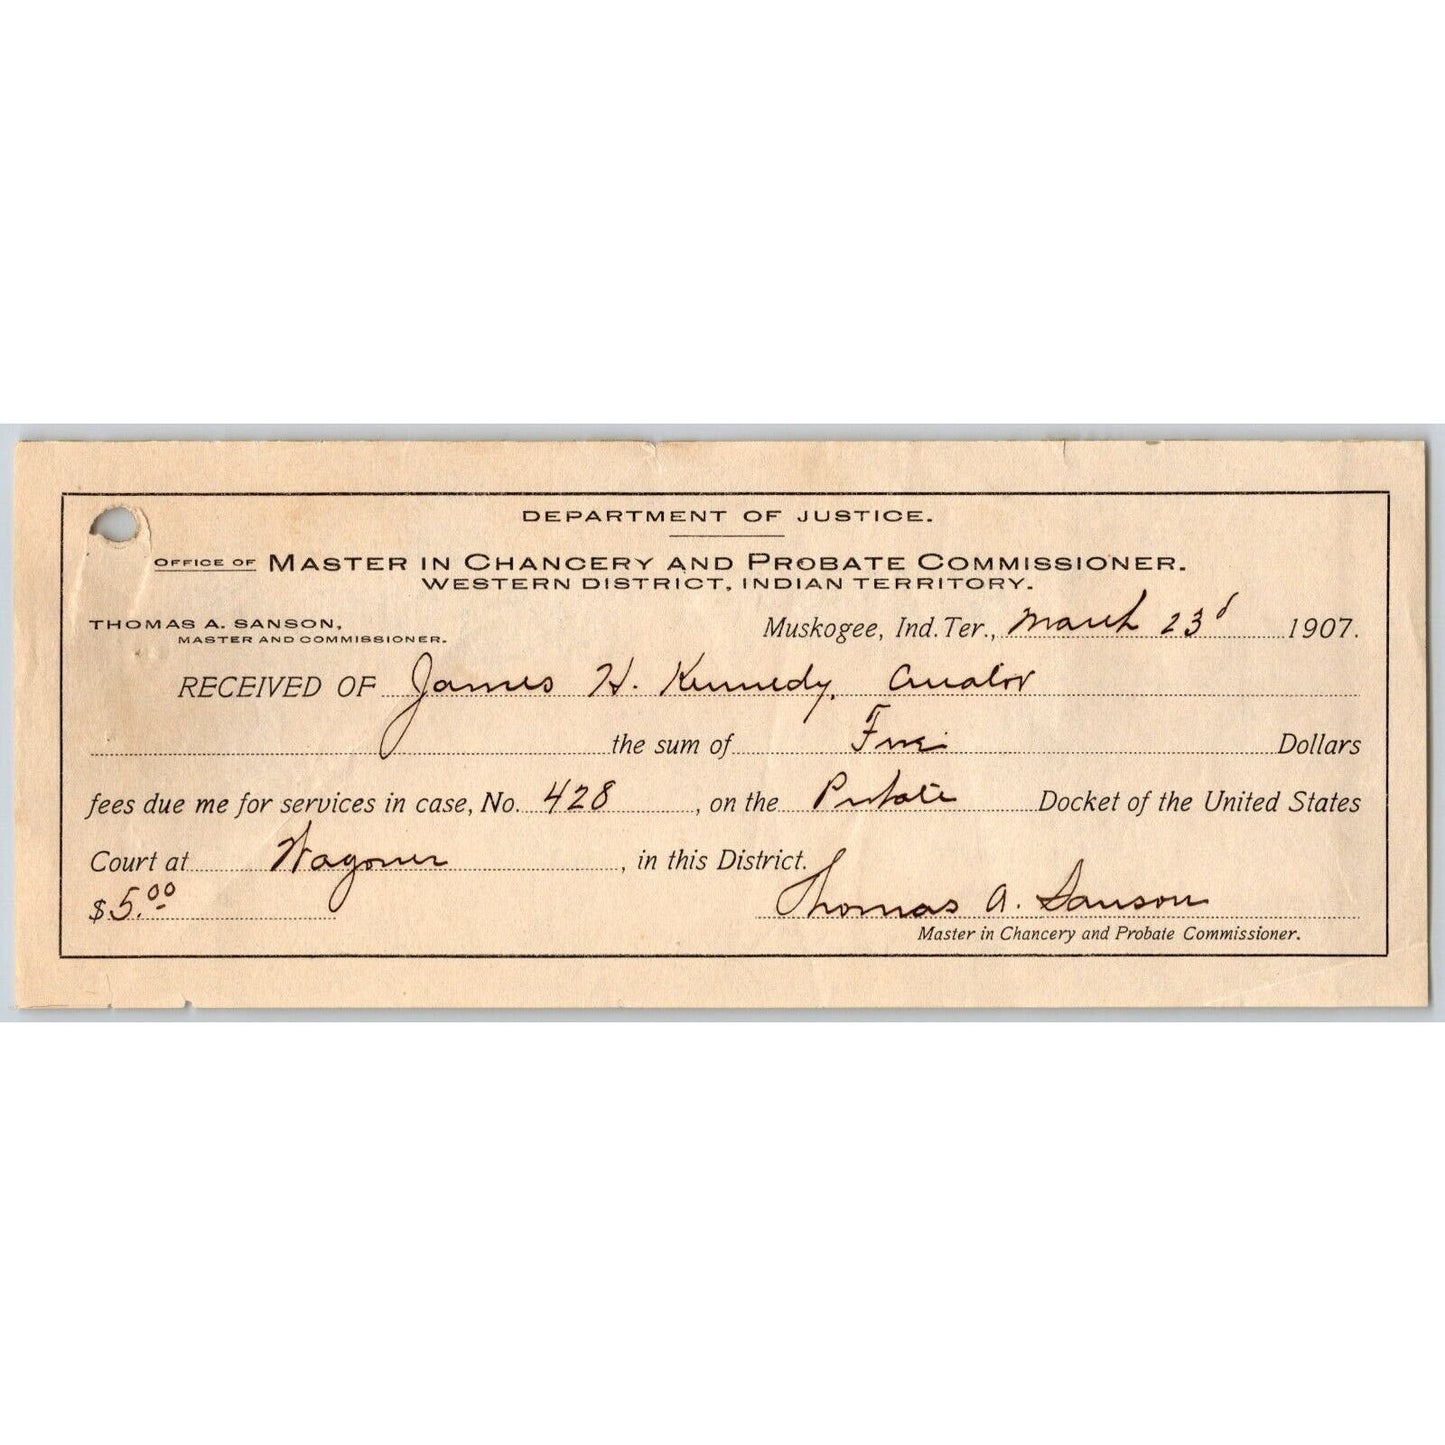 DEPARTMENT OF JUSTICE.
OFFICE OF MASTER IN CHANCERY AND PROBATE COMMISSIONER.
WESTERN DISTRICT, INDIAN TERRITORY.
THOMAS A. SANSON,
MASTER AND COMMISSIONER.
Muskogee, Ind. Ter., March 23d 1907.
RECEIVED OF James H. Kennedy, Curator
the sum of Five Dollars
fees due me for services in case, No. 428, on the Probate Docket of the United States
Court at Wagoner, in this District.
$5.00 Thomas A. Sanson
Master in Chancery and Probate Commissioner.